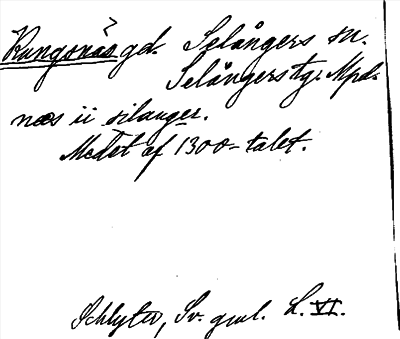 Kungsnäs gd. Selångers sn.
Selångers tg. Mpd.
næs ii silanger.
Medet af 1300-talet.
Schlyter, Sv. gml. L. VI.